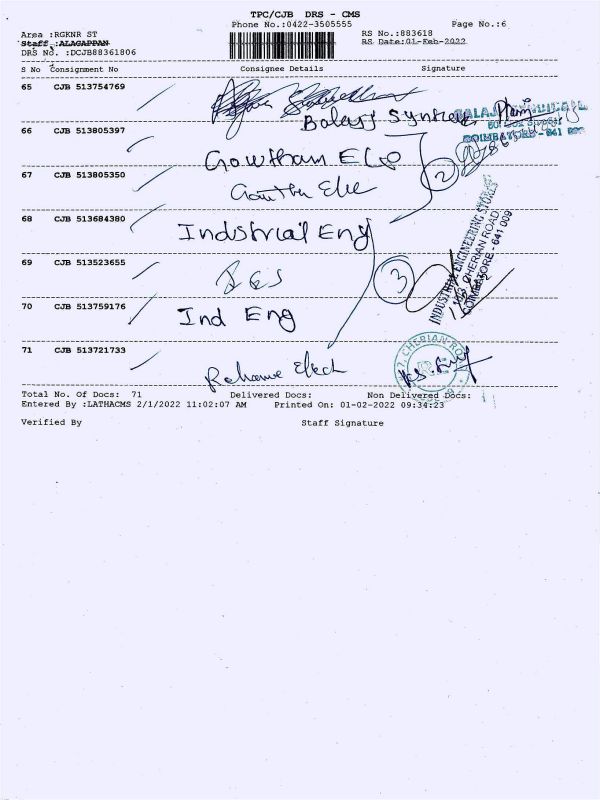 TPC/CJB DRS - CMS
Phone No.:0422-3505555
Page No.:6
Area :RGKNR ST
RS No.:883618
Staff :ALAGAPPAN
RS Date:01-Feb-2022
DRS No. :DCJB88361806
S No Consignment No Consignee Details Signature
65 CJB 513754769
66 CJB 513805397
Gowtham Ele
67 CJB 513805350
2
68 CJB 513684380
Industrial Eng
INDUSTRIAL ENGINEERING STORES
CHERIAN ROAD
COIMBATORE - 641 009
69 CJB 513523655
IES
3
70 CJB 513759176
Ind Eng
71 CJB 513721733
CHERIAN RO
Total No. Of Docs: 71 Delivered Docs: Non Delivered Docs:
Entered By :LATHACMS 2/1/2022 11:02:07 AM Printed On: 01-02-2022 09:34:23
Verified By Staff Signature